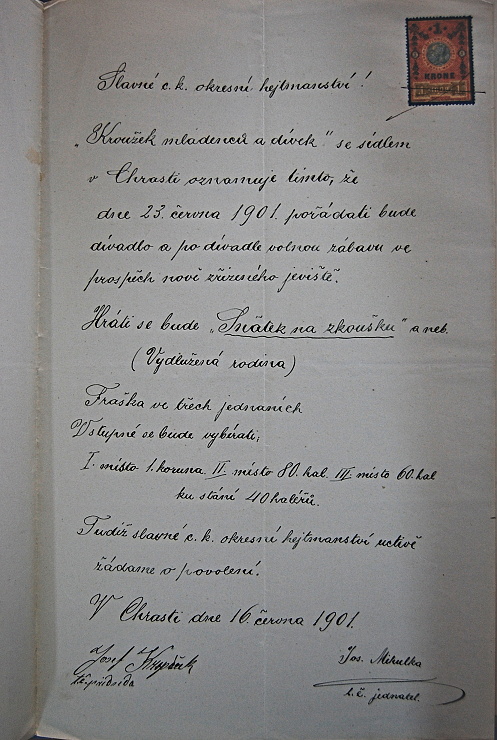 KRONE
Slavné c. k. okresní hejtmanství!
„Kroužek mládenců a dívek" se sídlem
v Chrasti oznamuje tímto, že
dne 23. června 1901. pořádati bude
divadlo a po divadle volnou zábavu ve
prospěch nově zřízeného jeviště.
Hráti se bude „Sňatek na zkoušku" aneb.
(Vydlužená rodina)
Fraška ve třech jednáních
Vstupné se bude vybírati;
I. místo 1. koruna II místo 80. hal. III místo 60. hal
ku stání 40 haléřů.
Tudíž slavné c. k. okresní hejtmanství uctivě
žádáme o povolení.
V Chrasti dne 16. června 1901.
Josef
t.č. předseda
Jos. Mikulka
t. č. jednatel.